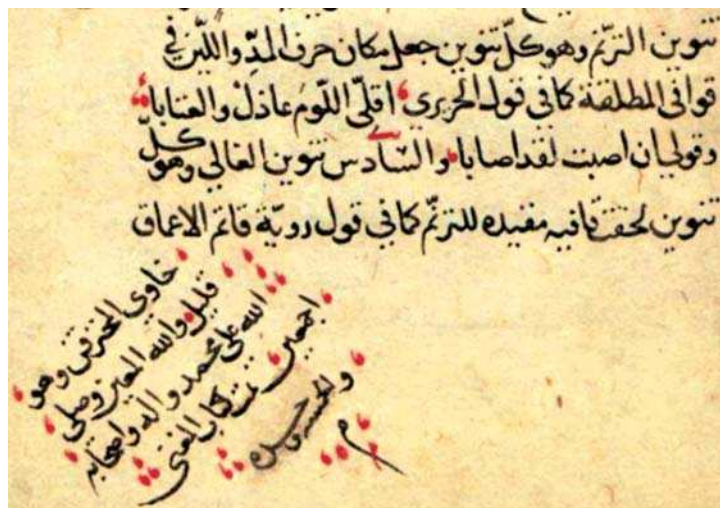 تنوين الترنم وهو كلّ تنوين جعل مكان حرف المدّ واللّين في
قوافي المطلقة كما في قول الحريري اقلّي اللّوم عاذل والعتابا
وقولي ان اصبت لقد اصابا والسّادس تنوين الغالي وهو كلّ
تنوين لحقت قافيه مقيده للترنّم كما في قول روبة قاتم الاعماق
خاوي المخترق وهو
قليل والله المعين وصلى
الله على محمد واله واصحابه
اجمعين تمت كتاب المغني
م